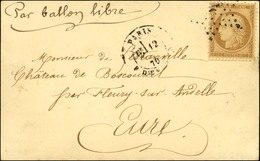 Par ballon libre
PARIS
12
Monsieur de
Château de
par Fleury sur Andelle
Eure